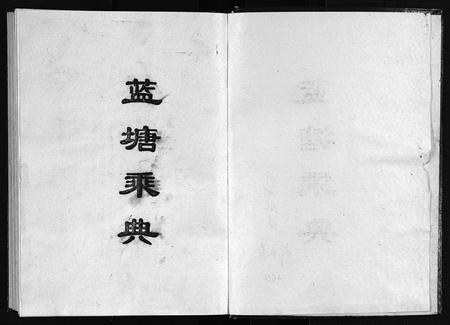 蓝塘乘典